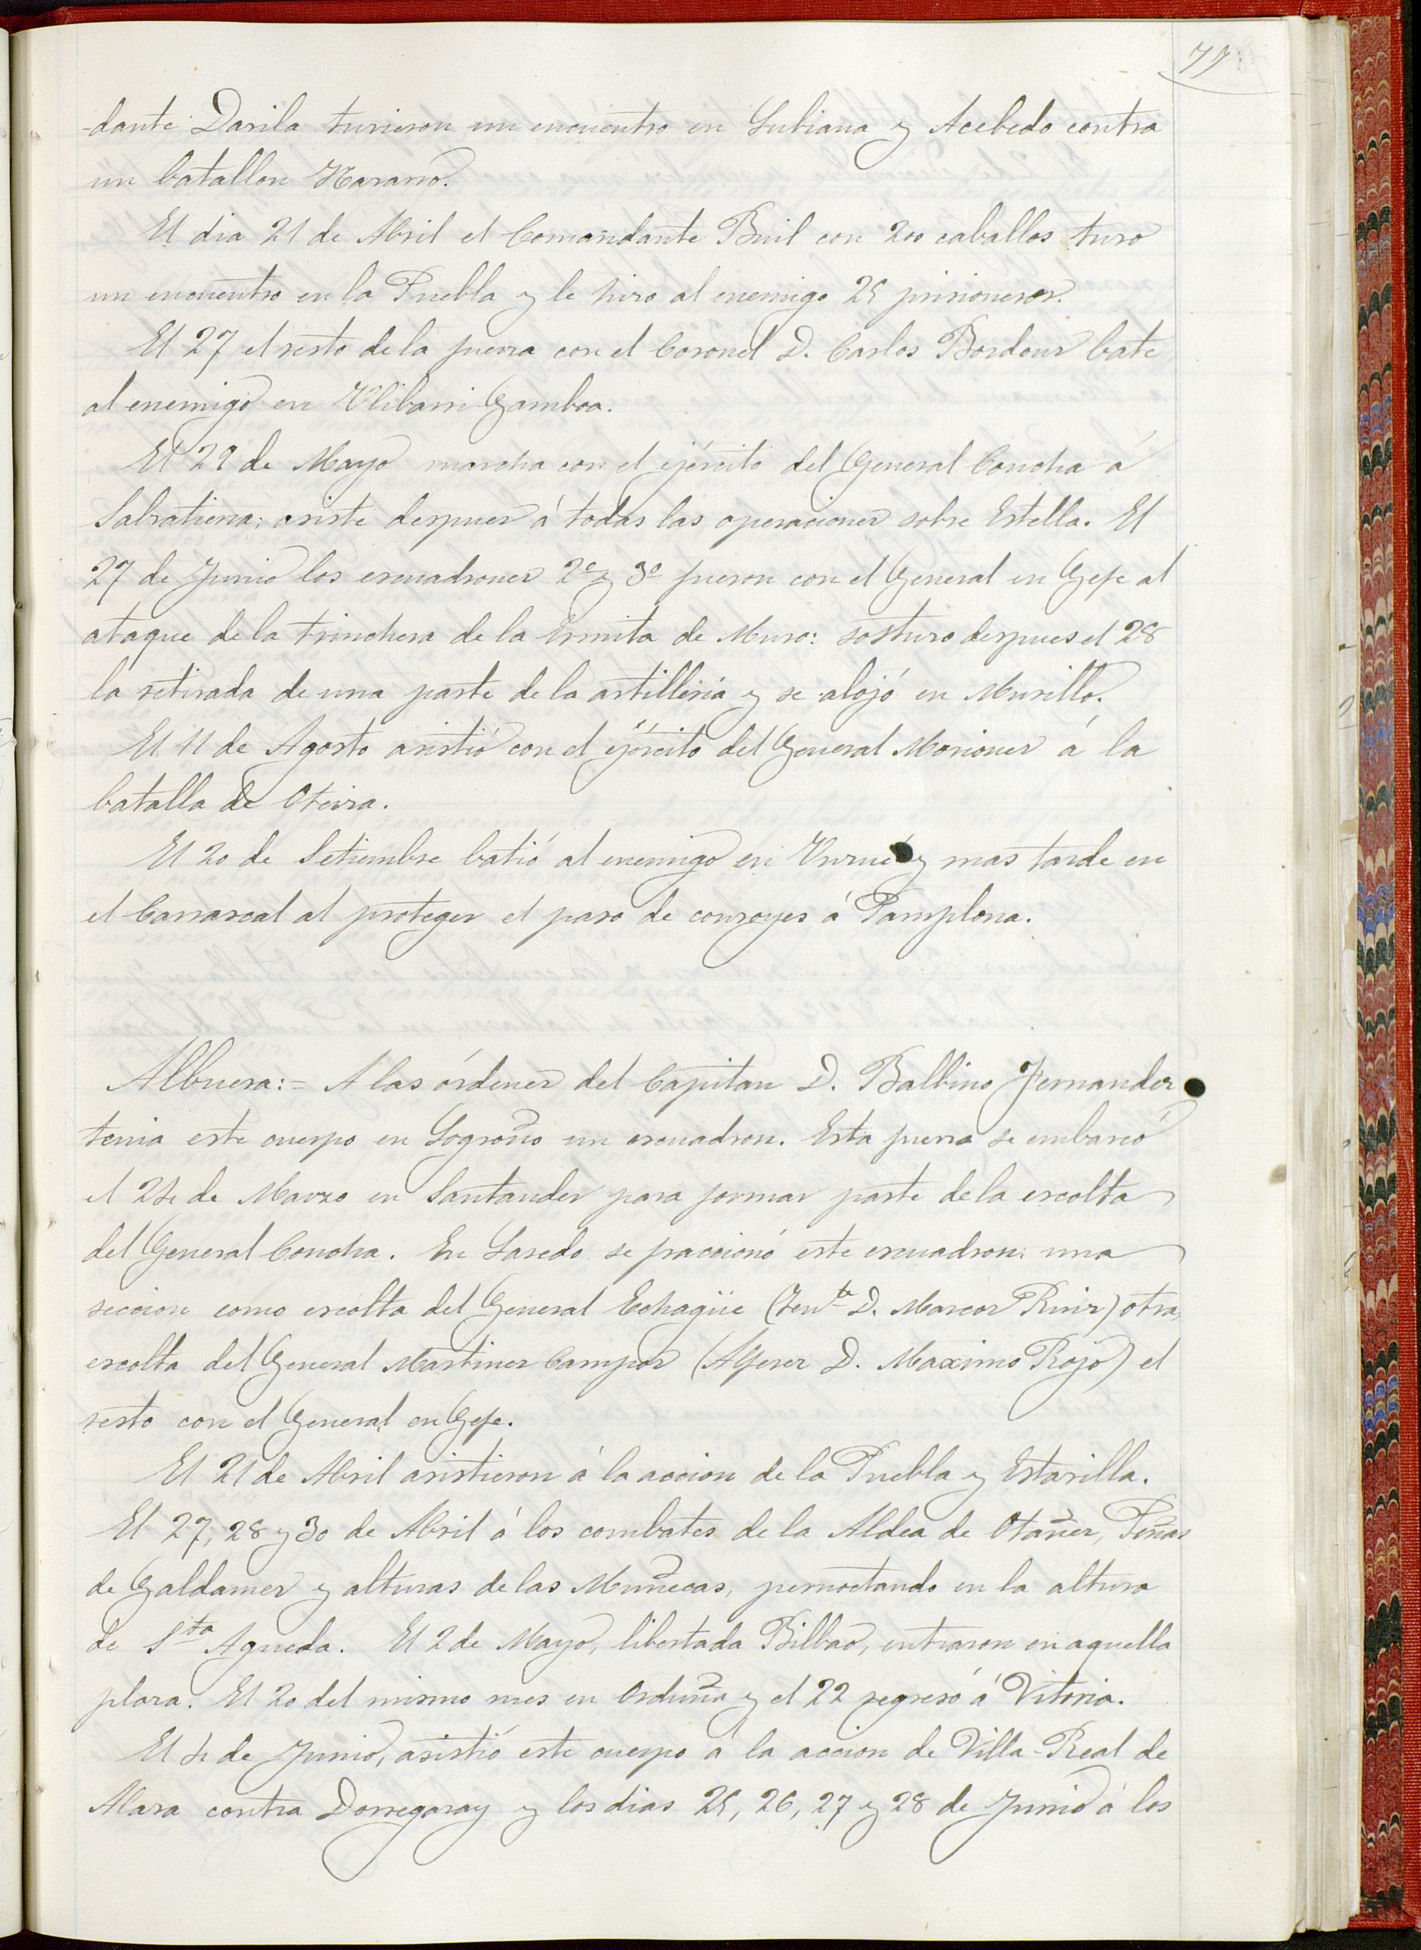 77
-dante Davila tuvieron un encuentro en Subiana y Acebedo contra
un batallon Navarro.
El dia 21 de Abril el Comandante Buil con 200 caballos tuvo
un encuentro en la Puebla y le hizo al enemigo 25 prisioneros.
El 27 el resto de la fuerza con el Coronel D. Carlos Bordons bate
al enemigo en Ulibarri Gamboa.
El 29 de Mayo marcha con el ejército del General Concha á
Salvatierra; asiste despues á todas las operaciones sobre Estella. El
27 de Junio los escuadrones 2º y 3º fueron con el General en Gefe al
ataque de la trinchera de la Ermita de Muro: sostuvo despues el 28
la retirada de una parte de la artilleria y se alojó en Murillo.
El 11 de Agosto asistió con el ejército del General Moriones á la
batalla de Oteiza.
El 20 de Setiembre batió al enemigo en y mas tarde en
el Carrascal al proteger el paso de convoyes á Pamplona.
Albuera:= A las órdenes del Capitan D. Balbino Fernandez
tenia este cuerpo en Logroño un escuadron. Esta fuerza se embarcó
el 24 de Marzo en Santander para formar parte de la escolta
del General Concha. En Laredo se fraccionó este escuadron: una
seccion como escolta del General Echagüe (Tente D. Marcos Ruiz) otra,
escolta del General Martinez Campos (Alferez D. Maximo Rojo) el
resto con el General en Gefe.
El 21 de Abril asistieron á la accion de la Puebla y Estavilla.
El 27, 28 y 30 de Abril á los combates de la Aldea de Otañez, Peñas
de Galdamez y alturas de las Muñecas, pernoctando en la altura
de Sta Agueda. El 2 de Mayo, libertada Bilbao, entraron en aquella
plaza. El 20 del mismo mes en Orduña y el 22 regresó á Vitoria.
El 4 de Junio, asistió este cuerpo á la accion de Villa-Real de
Alava contra Dorregaray y los dias 25, 26, 27 y 28 de Junio á los